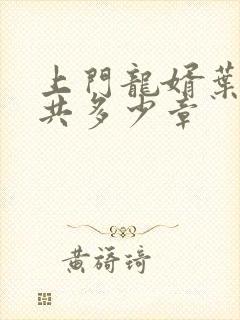 上門龍婿葉
共多少章
黃旖琦